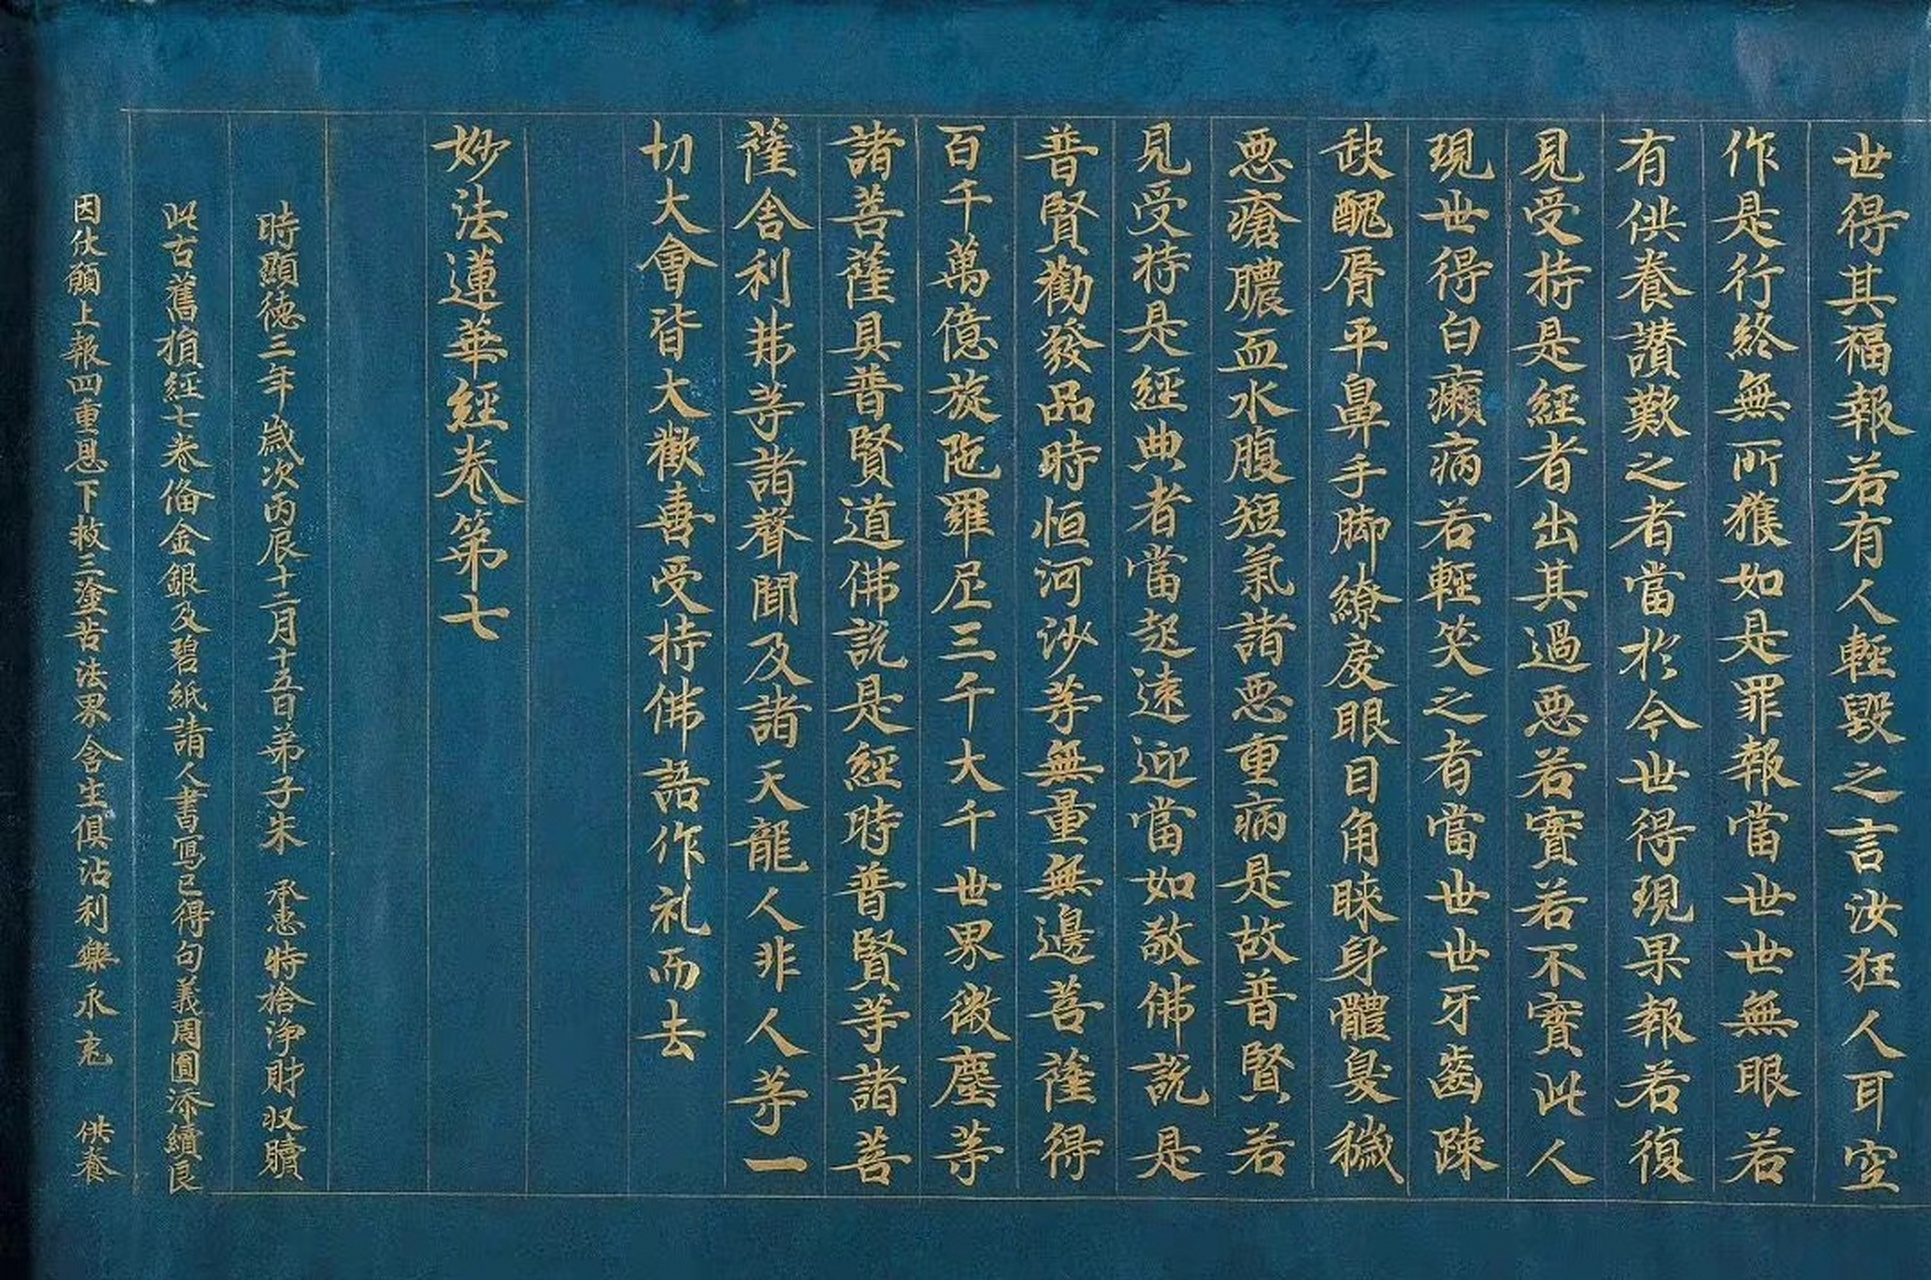 世得其福報若有人輕毀之言汝狂人耳空
作是行終無所獲如是罪報當世世無眼若
有供養讃歎之者當於今世得現果報若復
見受持是經者出其過惡若實若不實此人
現世得白癩病若輕笑之者當世世牙齒踈
缺醜脣平鼻手脚繚戾眼目角睞身體臭穢
惡瘡膿血水腹短氣諸惡重病是故普賢若
見受持是經典者當起遠迎當如敬佛說是
普賢勸發品時恒河沙等無量無邊菩薩得
百千萬億旋陁羅尼三千大千世界微塵等
諸菩薩具普賢道佛說是經時普賢等諸菩
薩舍利弗等諸聲聞及諸天龍人非人等一
切大會皆大歡喜受持佛語作礼而去
妙法蓮華經卷第七
時顯德三年歲次丙辰十二月十五日弟子朱 承惠特捨淨財収贖
此古舊損經七卷俻金銀及碧紙請人書寫已得句義周圓添續良
因伏願上報四重恩下救三塗苦法界含生俱沾利樂永充 供養